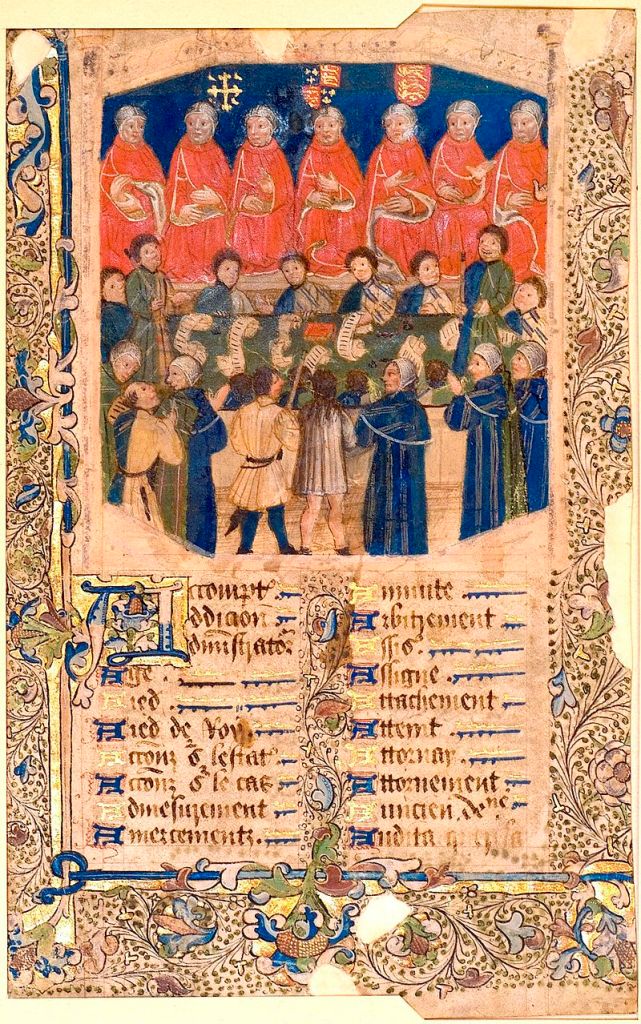 Accompt
ddicion
dministrator
Age
Aied
Aied de Roy
Accōnz sr lestat
Accōnz sr le cas
Admesurement
Amercementz
Annuite
Arbitrement
Assis
Assigne
Attachement
Atteint
Attornay
Attornement
Auncien
Audita